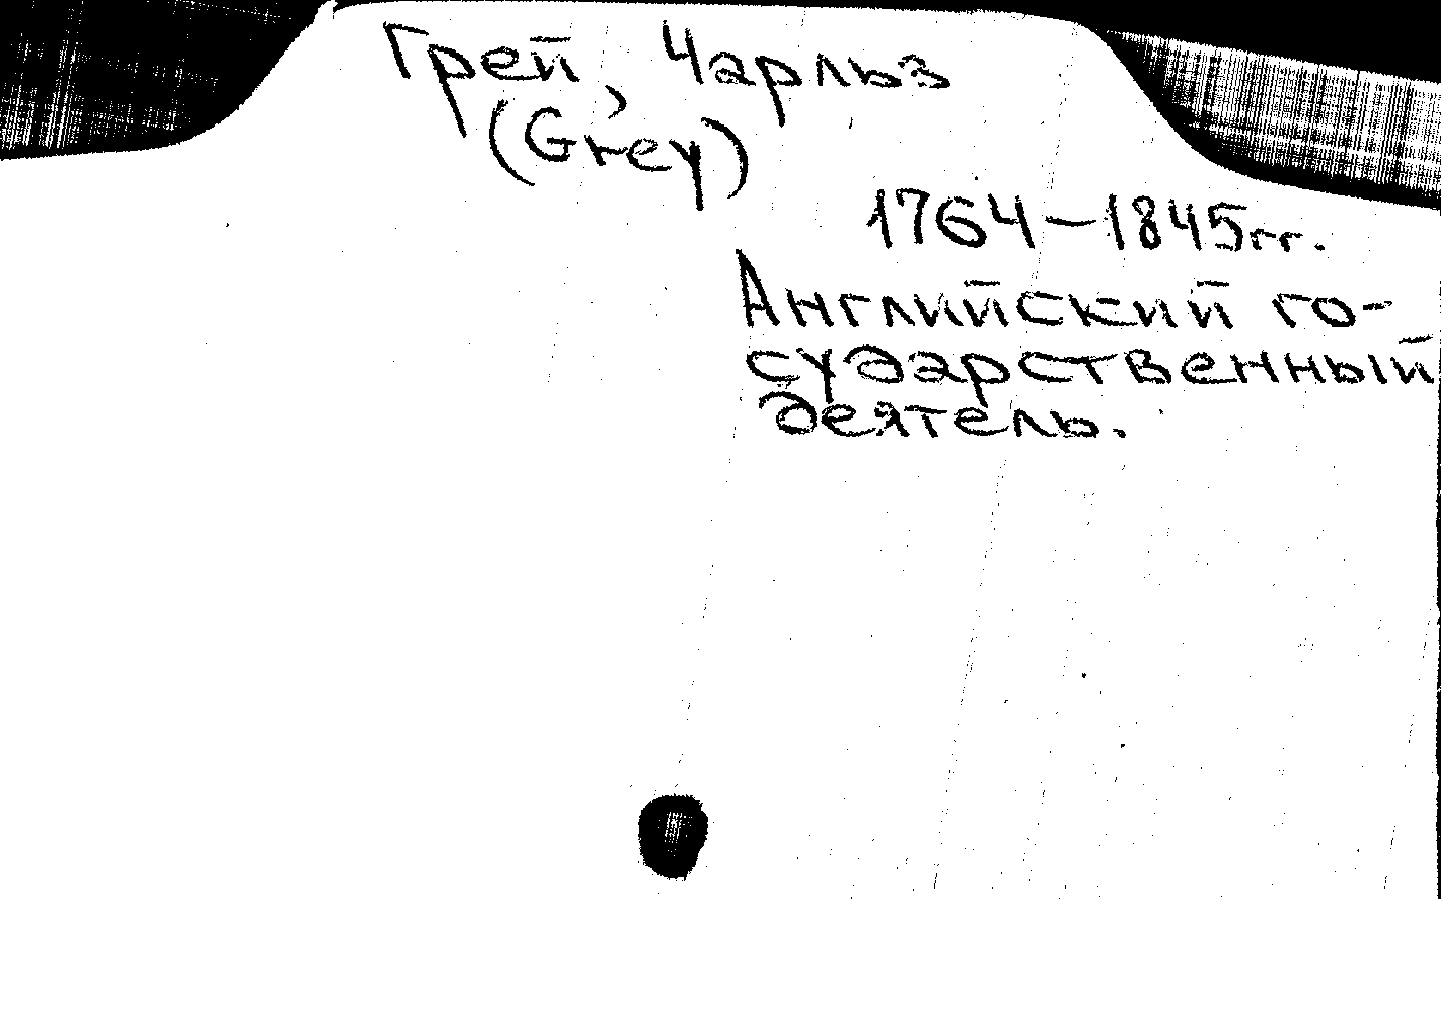 Грей, Чарльз
(Grey)
1764-1845гг.
Английский го-
сударственный
деятель.